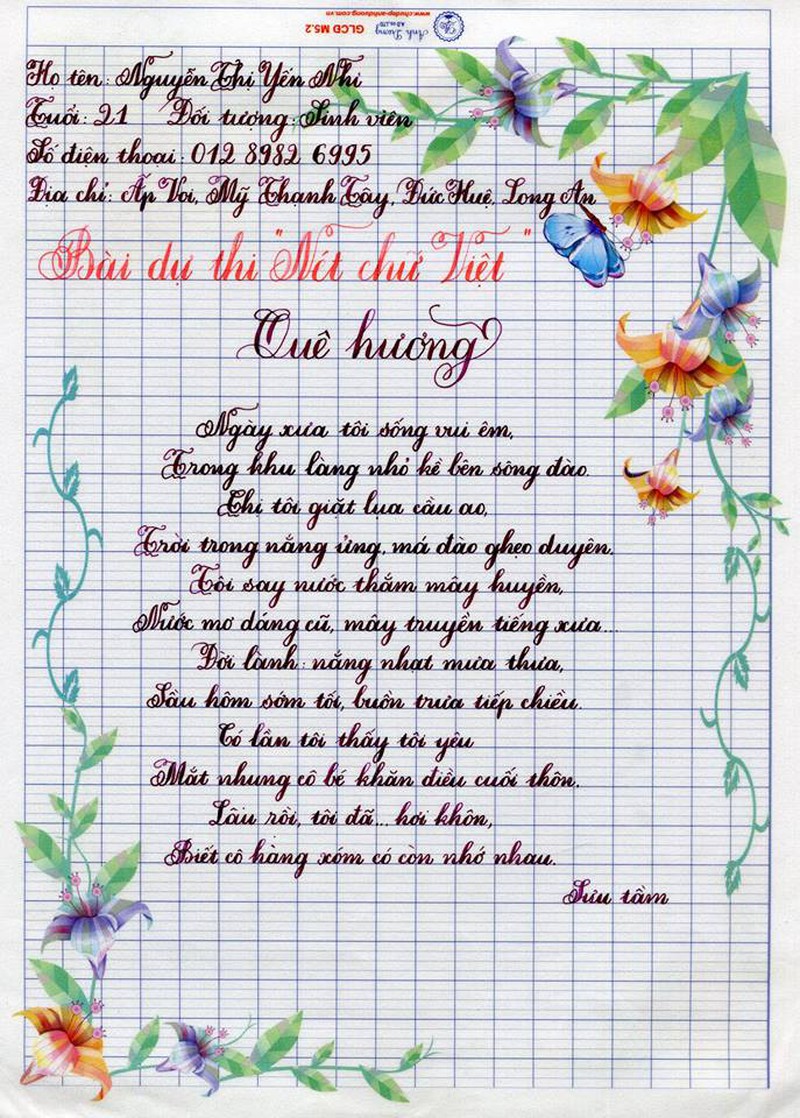 www.chudep-anhduong.com.vn
Ánh Dương
GLCĐ M5.2
Họ tên: Nguyễn Thị Yến Nhi
Tuổi: 21 Đối tượng: Sinh viên
Số điện thoại: 012 8982 6995
Địa chỉ: Ấp Voi, Mỹ Thạnh Tây, Đức Huệ, Long An
Bài dự thi "Nét chữ Việt"
Quê hương
Ngày xưa tôi sống vui êm,
Trong khu làng nhỏ kề bên sông đào.
Chị tôi giặt lụa cầu ao,
Trời trong nắng ửng, má đào ghẹo duyên.
Tôi say nước thắm mây huyền,
Nước mơ dáng cũ, mây truyền tiếng xưa...
Đời lành: nắng nhạt mưa thưa,
Sầu hôm sớm tối, buồn trưa tiếp chiều.
Có lần tôi thấy tôi yêu
Mắt nhung cô bé khăn điều cuối thôn.
Lâu rồi, tôi đã... hơi khôn,
Biết cô hàng xóm có còn nhớ nhau.
Sưu tầm